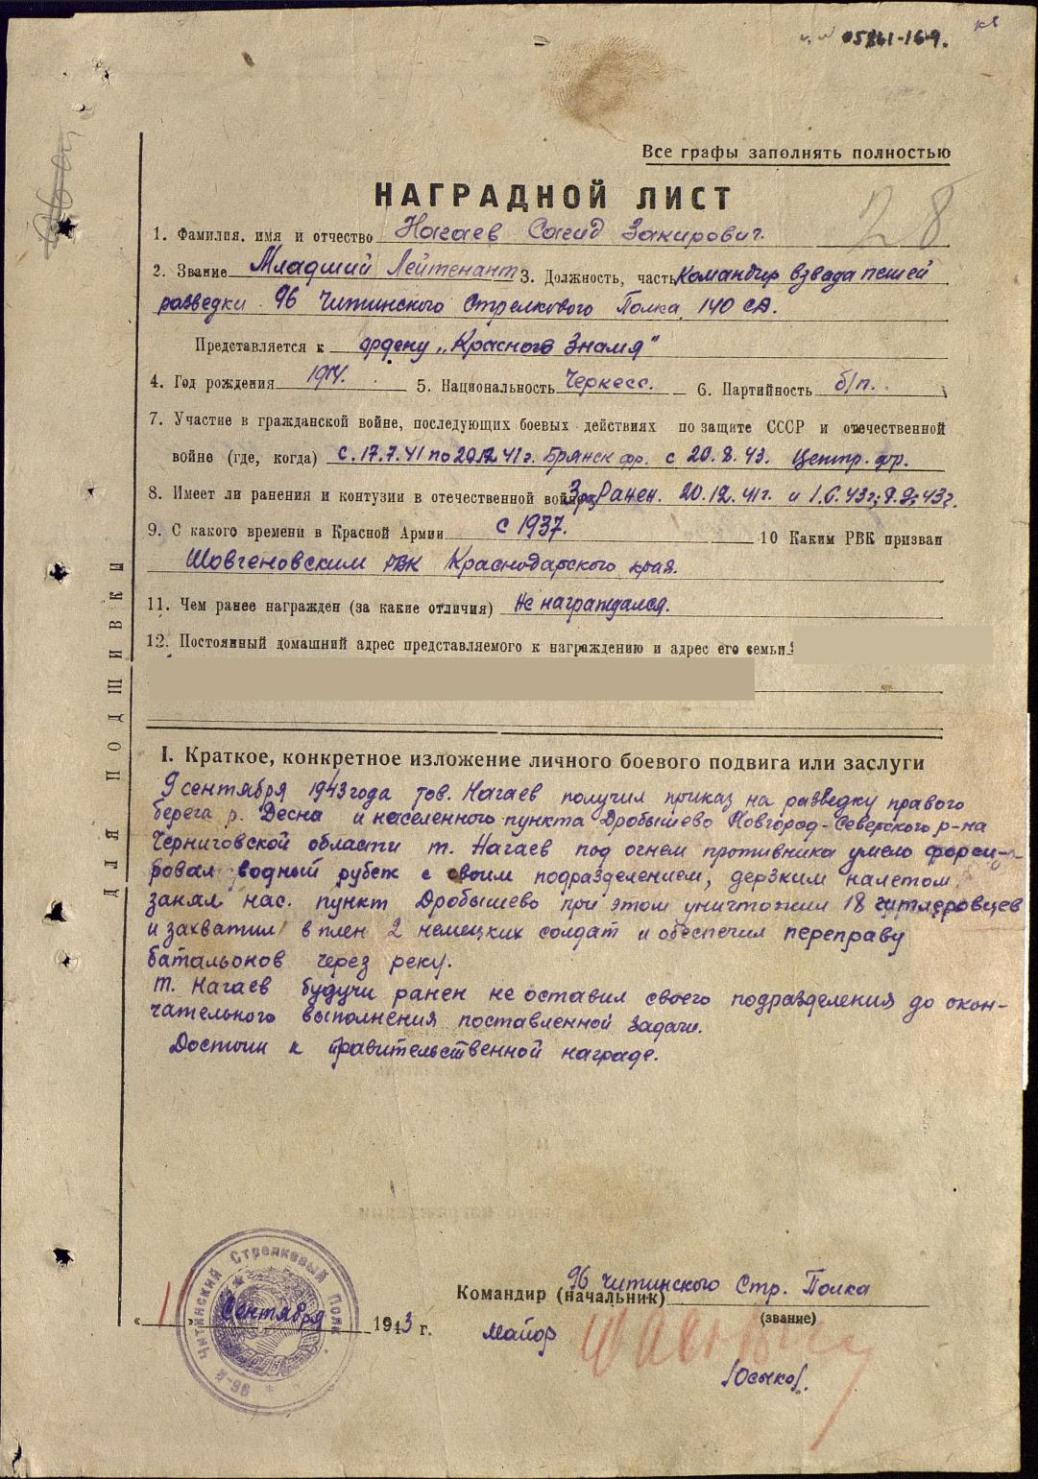 05861-169.
Все графы заполнять полностью
НАГРАДНОЙ ЛИСТ
28
1. Фамилия, имя и отчество Нагаев Сагид Закирович.
2. Звание Младший Лейтенант 3. Должность, часть Командир взвода пешей
разведки 96 Читинского Стрелкового Полка 140 СД.
Представляется к ордену „Красного Знамя"
4. Год рождения 5. Национальность Черкесс. 6. Партийность б/п.
7. Участие в гражданской войне, последующих боевых действиях по защите СССР и отечественной
войне (где, когда) с 17.7.41 по 20.12.41г. Брянск фр. с 20.8.43. Центр. фр.
8. Имеет ли ранения и контузии в отечественной войне Ранен. 20.12.41г. и 1.6.43г; 9.9.43г.
9. С какого времени в Красной Армии с 1937. 10 Каким РВК призван
Шовгеновским РВК Краснодарского края.
11. Чем ранее награжден (за какие отличия) Не награждался.
12. Постоянный домашний адрес представляемого к награждению и адрес его семьи:
I. Краткое, конкретное изложение личного боевого подвига или заслуги
9 сентября 1943 года тов. Нагаев получил приказ на разведку правого
берега р. Десна и населенного пункта Дробышево Новгород-Северского р-на
Черниговской области т. Нагаев под огнем противника умело форси-
ровал водный рубеж с своим подразделением, дерзким налетом
занял нас. пункт Дробышево при этом уничтожил 18 гитлеровцев
и захватил в плен 2 немецких солдат и обеспечил переправу
батальонов через реку.
т. Нагаев будучи ранен не оставил своего подразделения до окон-
чательного выполнения поставленной задачи.
Достоин к правительственной награде.
ДЛЯ ПОДШИВКИ
96-й Читинский Стрелковый Полк
Командир (начальник) 96 Читинского Стр. Полка
(звание)
„ " Сентября 1943 г.
Майор
/Осыко/.